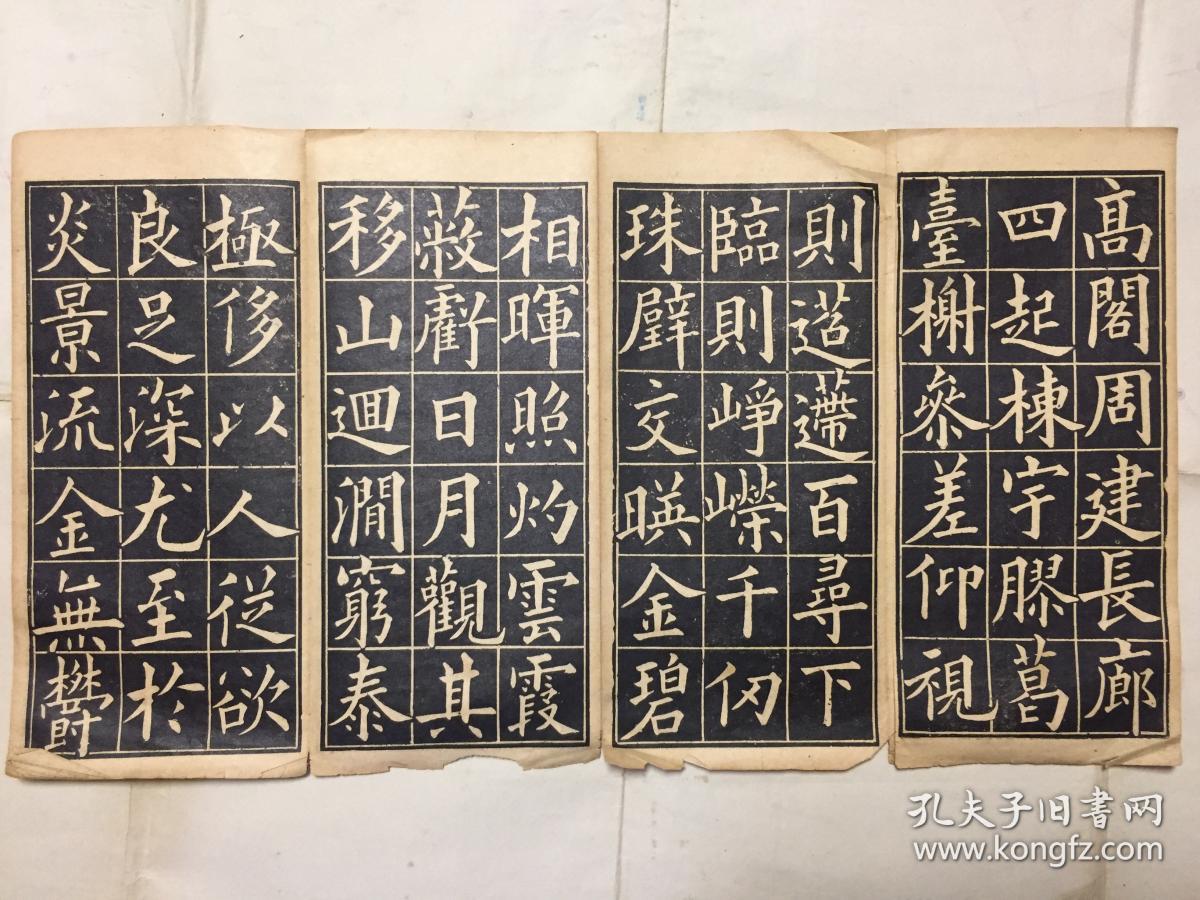 髙閣周建長廊
四起棟宇膠葛
臺榭叅差仰視
則迢遰百尋下
臨則崢嶸千仞
珠璧交暎金碧
相暉照灼雲霞
蔽虧日月觀其
移山迴澗窮泰
極侈以人從欲
良足深尤至於
炎景流金無欝
孔夫子旧书网
www.kongfz.com